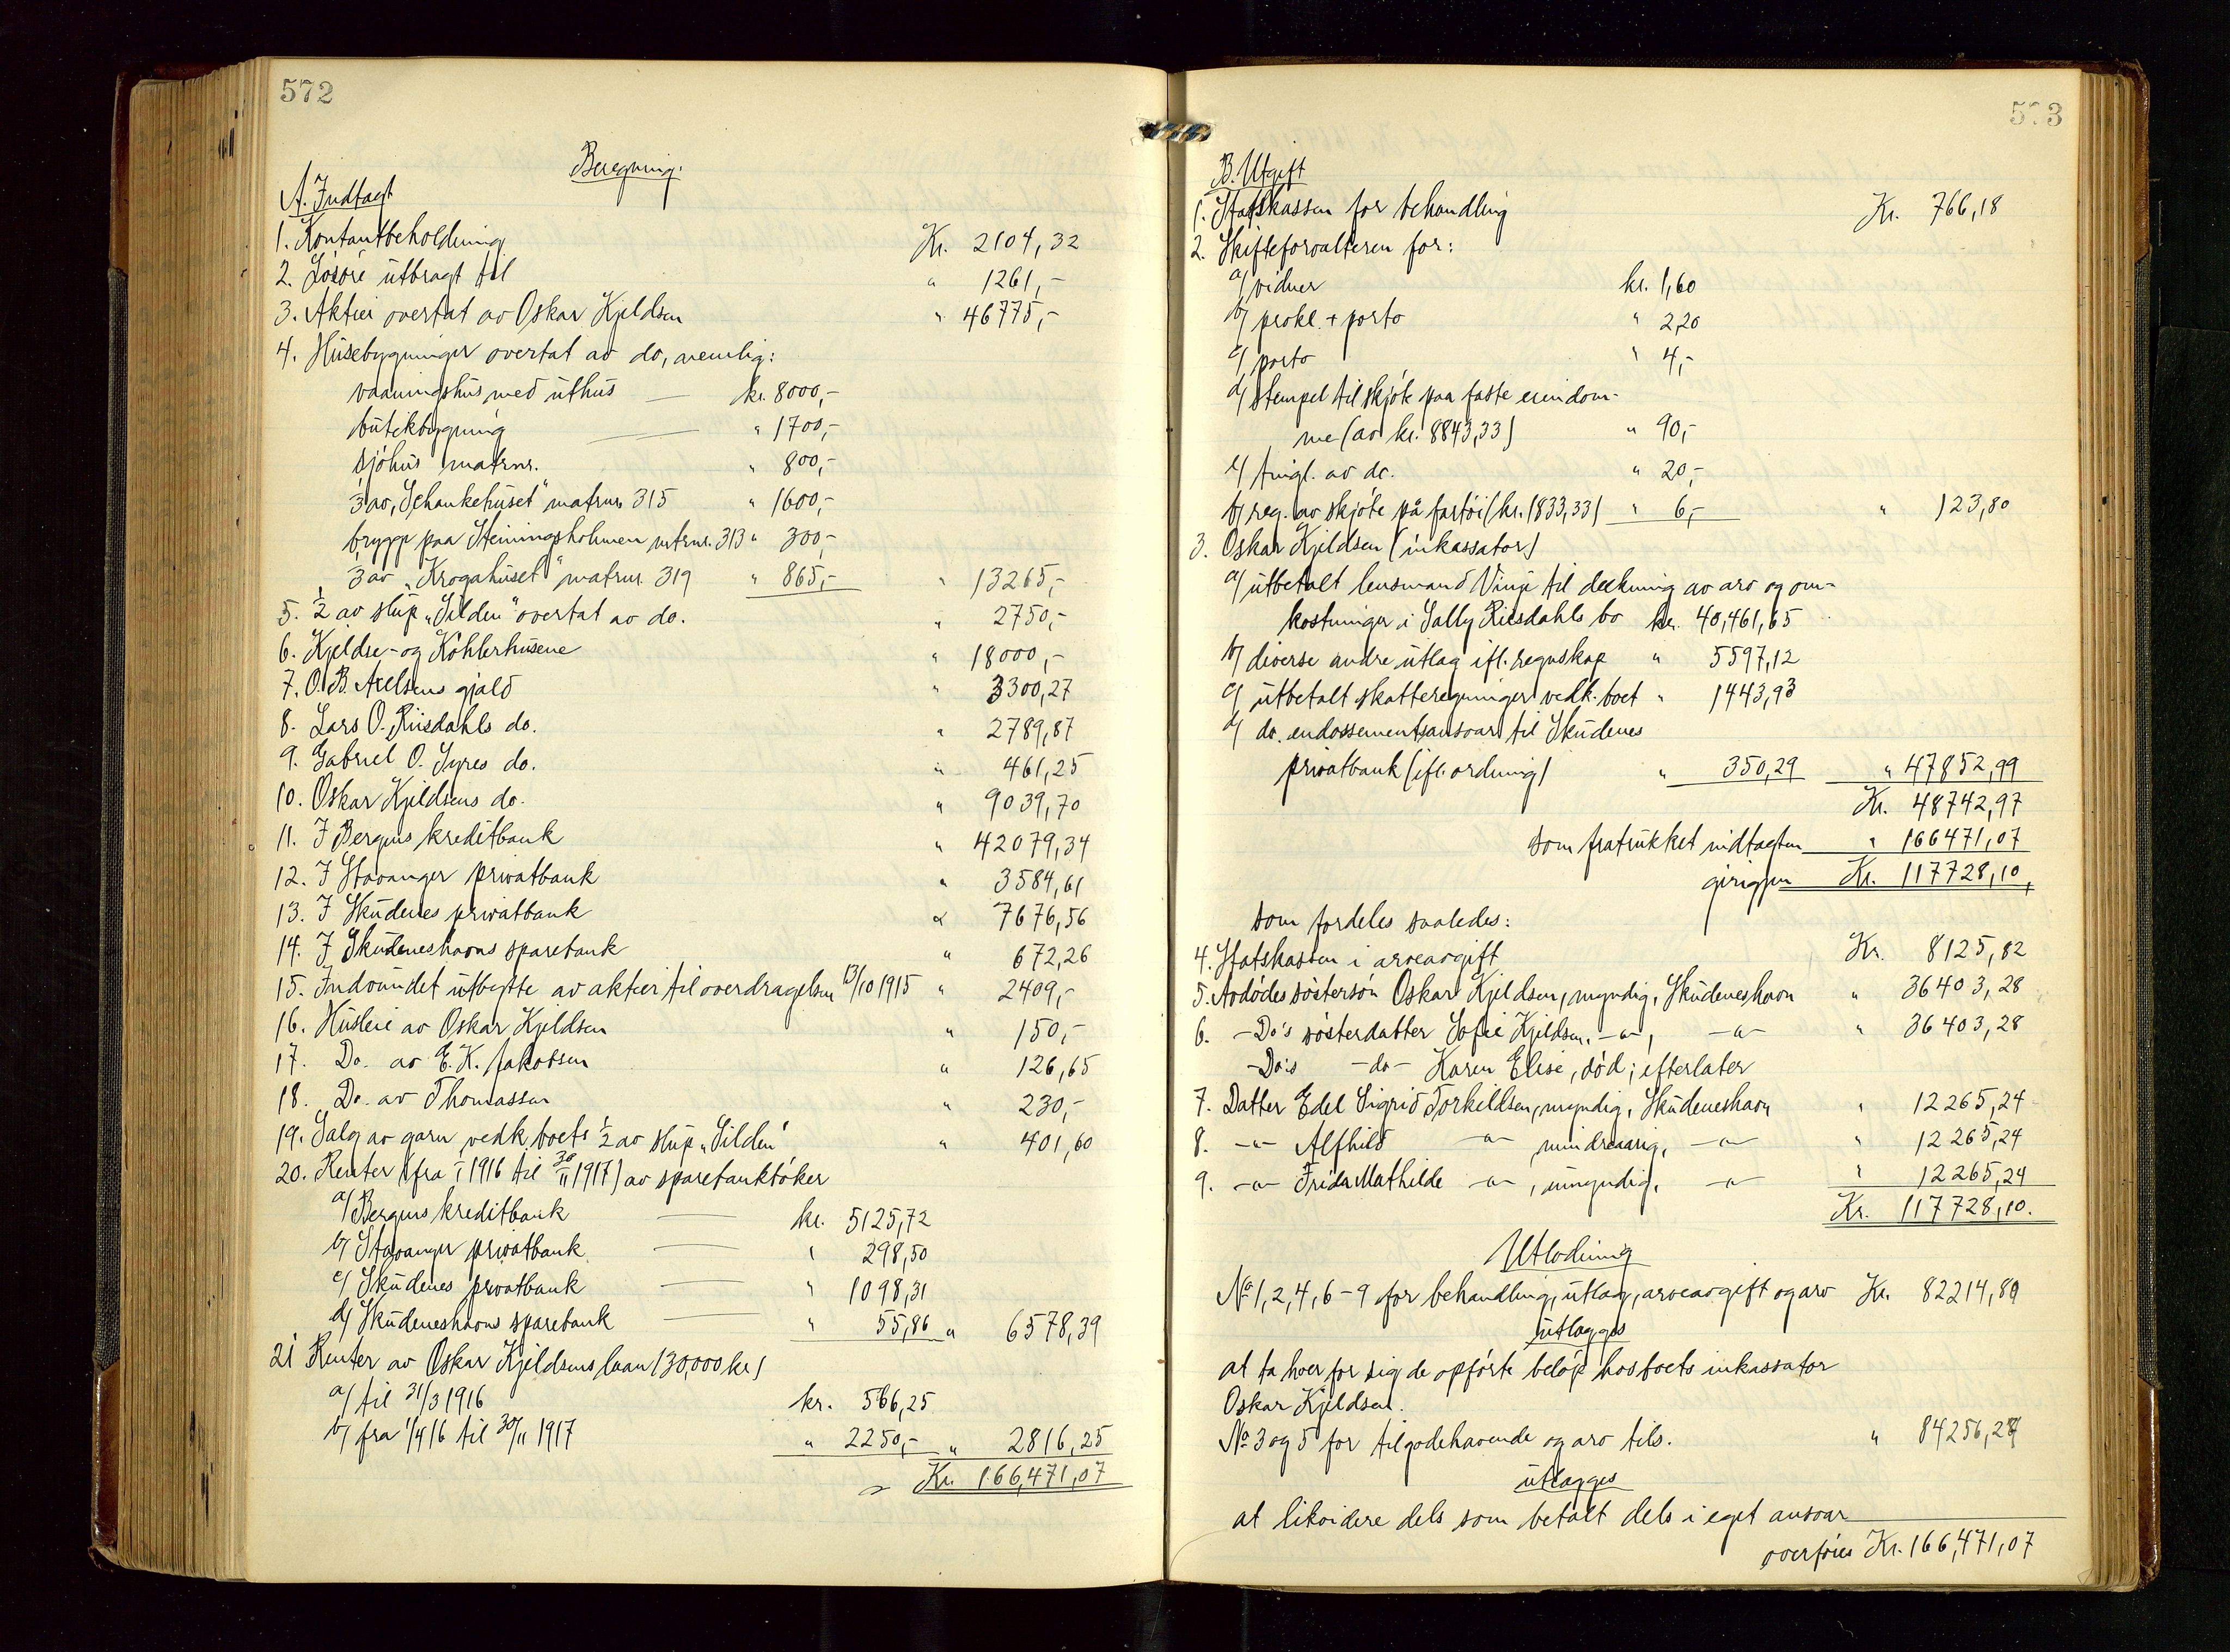 572
Beregning.
A. Indtægt
1. Kontantbeholdning Kr. 2104,32
2. Lösöre utbragt til " 1261,-
3. Aktier overtat av Oskar Kjeldsen " 46775,-
4. Husebygninger overtat av do, nemlig:
vaaningshus med uthus — kr. 8000,-
butikbygning — " 1700,-
sjöhus matrnr. " 800,-
av "Schankehuset" matrnr. 315 " 1600,-
brygge paa Steiningsholmen mtrnr. 313 " 300,-
av "Krogahuset" matrnr. 319 " 865,- " 13265,-
5. ½ av slup "Silden" overtat av do. " 2750,-
6. Kjeldse- og Köhlerhusene " 18000,-
7. O. B. Axelsens gjæld " 3300,27
8. Lars O. Riisdahls do. " 2789,87
9. Gabriel O. Syres do. " 461,25
10. Oskar Kjeldsens do. " 9039,70
11. I Bergens kreditbank " 42079,34
12. I Stavanger privatbank " 3584,61
13. I Skudenes privatbank " 7676,56
14. I Skudeneshavns sparebank " 672,26
15. Indvundet utbytte av aktier til overdragelsen 13/10 1915 " 2409,-
16. Husleie av Oskar Kjeldsen " 150,-
17. Do. av E. K. Jakobsen " 126,65
18. Do. av Thomassen " 230,-
19. Salg av garn vedk. boets ½ av slup "Silden" " 401,60
20. Renter (fra 1/1 1916 til 30/11 1917) av sparebankböker
a/ Bergens kreditbank — kr. 5125,72
b/ Stavanger privatbank — " 298,50
c/ Skudenes privatbank — " 1098,31
d/ Skudeneshavns sparebank — " 55,86 " 6578,39
21 Renter av Oskar Kjeldsens laan (30,000 kr)
a/ til 31/3 1916 kr. 566,25
b/ fra 1/4 16 til 30/11 1917 " 2250,- " 2816,25
Kr. 166,471,07
573
B. Utgift
1. Statskassen for behandling Kr. 766,18
2. Skifteforvalteren for:
a/ vidner kr. 1,60
b/ prokl. + porto " 2,20
c/ porto " 4,-
d/ stempel til skjöte paa faste eiendom-
me (av kr. 8843,33) " 90,-
e/ tingl. av do. " 20,-
f/ reg. av skjöte på fartöi (kr. 1833,33) " 6,- " 123,80
3. Oskar Kjeldsen (inkassator)
a/ utbetalt lensmand Vinje til dækning av arv og om-
kostninger i Sally Riisdahls bo kr. 40,461,65
b/ diverse andre utlæg ifl. regnskap " 5597,12
c/ utbetalt skatteregninger vedk. boet " 1443,93
d/ do. endossementsansvar til Skudenes
privatbank (ifl. ordning) " 350,29 " 47852,99
Kr. 48742,97
som fratrukket indtægten " 166471,07
gir igjen Kr. 117728,10,
som fordeles saaledes:
4. Statskassen i arveavgift Kr. 8125,82
5. Avdödes söstersön Oskar Kjeldsen, myndig, Skudeneshavn " 36403,28
6. -Do's sösterdatter Sofie Kjeldsen, -"-, -"- " 36403,28
-Do's -do- Karen Elise, död; efterlater
7. Datter Edel Sigrid Torkildsen, myndig, Skudeneshavn " 12265,24
8. -"- Alfhild -"- mindreaarig, -"- " 12265,24
9. -"- Frida Mathilde -"-, umyndig, -"- " 12265,24
Kr. 117728,10.
Utlodning
No 1, 2, 4, 6-9 for behandling, utlæg, arveavgift og arv Kr. 82214,80
utlægges
at ta hver for sig de opförte belöp hos boets inkassator
Oskar Kjeldsen.
No 3 og 5 for tilgodehavende og arv tils. " 84256,27
utlægges
at likvidere dels som betalt dels i eget ansvar
overföies Kr. 166,471,07